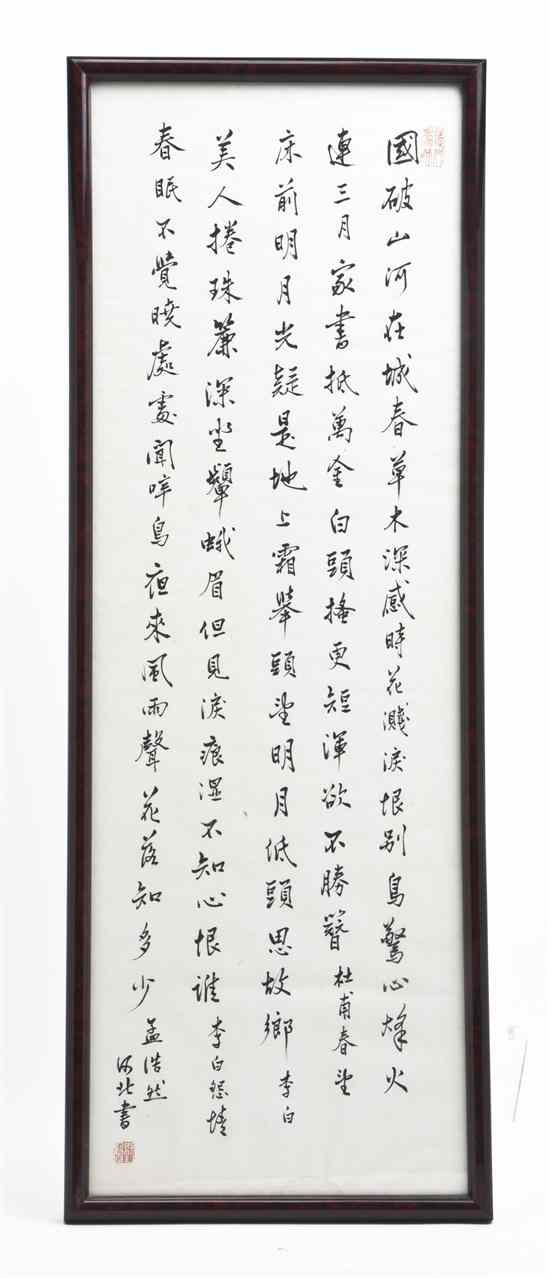 國破山河在城春草木深感時花濺淚恨别鳥驚心烽火
連三月家書抵萬金白頭搔更短渾欲不勝簪杜甫春望
床前明月光疑是地上霜舉頭望明月低頭思故鄉李白
美人捲珠簾深坐顰蛾眉但見淚痕濕不知心恨誰李白怨情
春眠不覺曉處處聞啼鳥夜來風雨聲花落知多少孟浩然
河北書